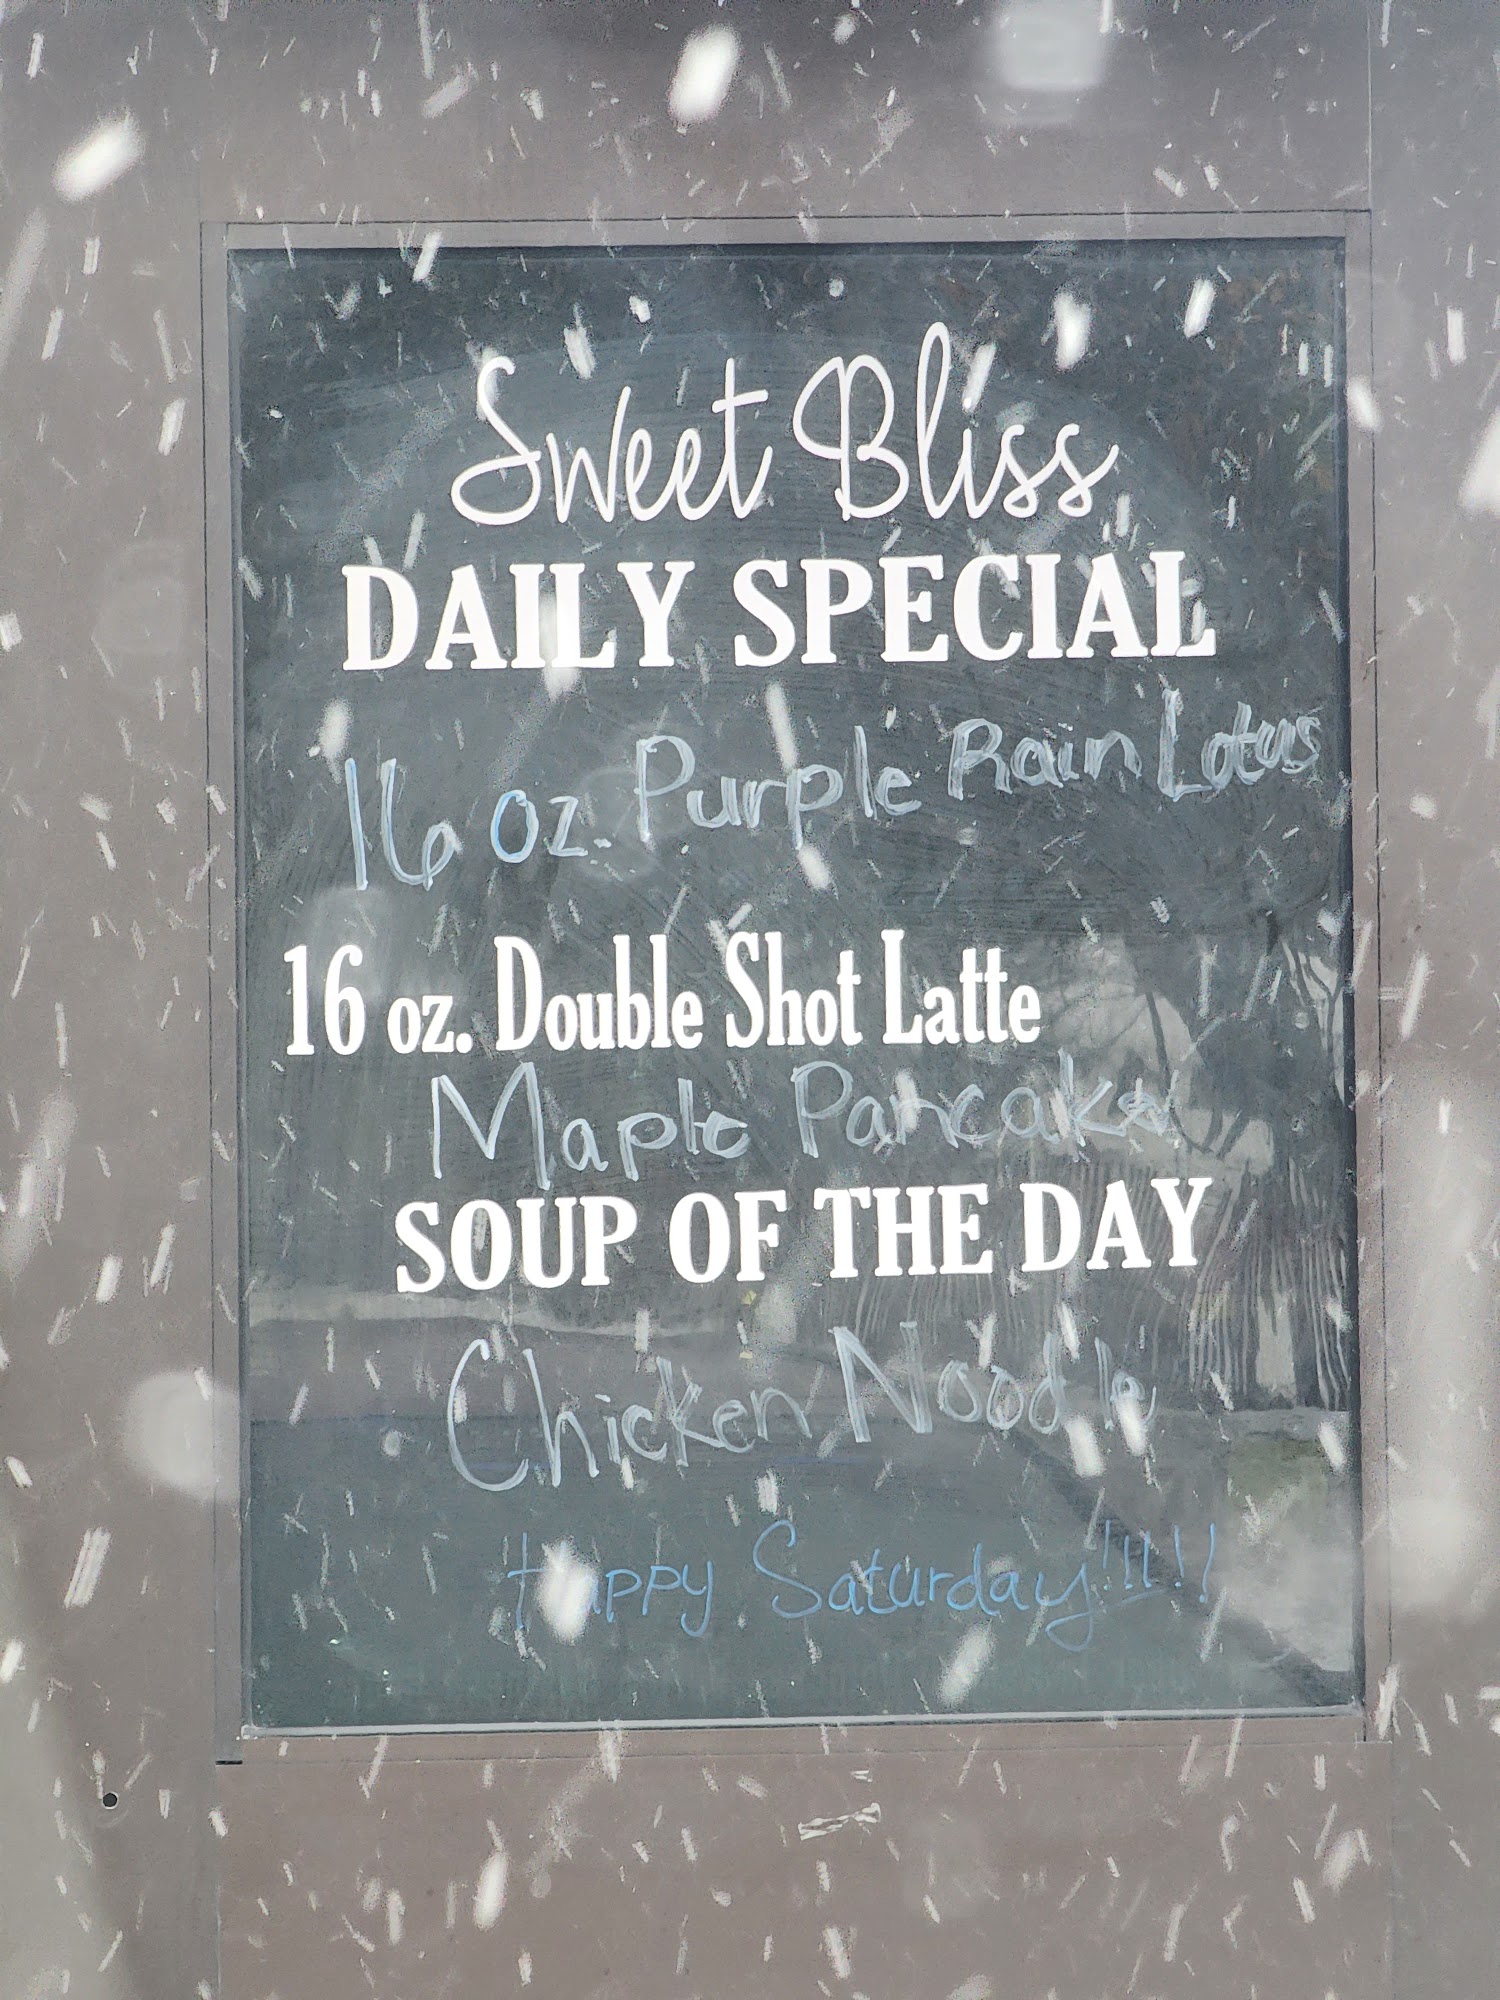 Sweet Bliss
DAILY SPECIAL
16 oz. Purple Rain Lotus
16 oz. Double Shot Latte
Maple Pancake
SOUP OF THE DAY
Chicken Noodle
Happy Saturday!!!!!